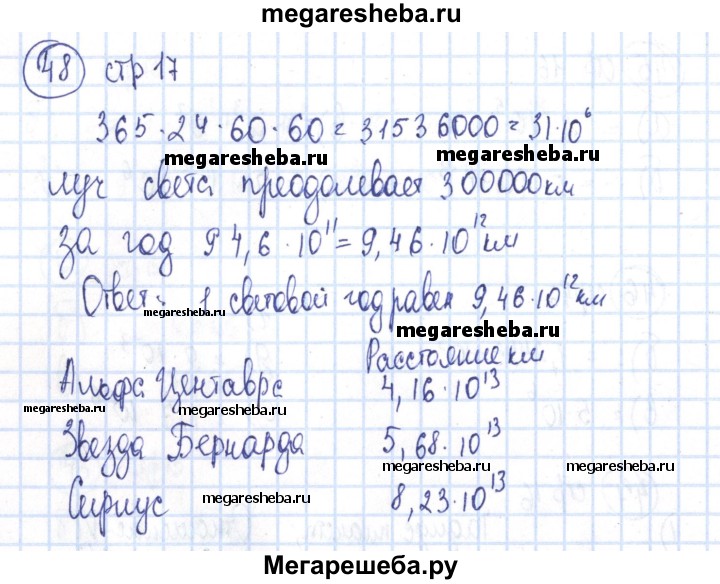 megaresheba.ru
48 стр 17
365·24·60·60=31536000=31·10⁶
megaresheba.ru megaresheba.ru
луч света преодолевает 300000км
за год 94,6·10¹¹=9,46·10¹²км
Ответ: 1 световой год равен 9,46·10¹²км
megaresheba.ru
megaresheba.ru
Расстояние км
Альфа Центавра 4,16·10¹³
megaresheba.ru megaresheba.ru
Звезда Бернарда 5,68·10¹³
megaresheba.ru megaresheba.ru
Сириус 8,23·10¹³
megaresheba.ru
Мегарешеба.ру